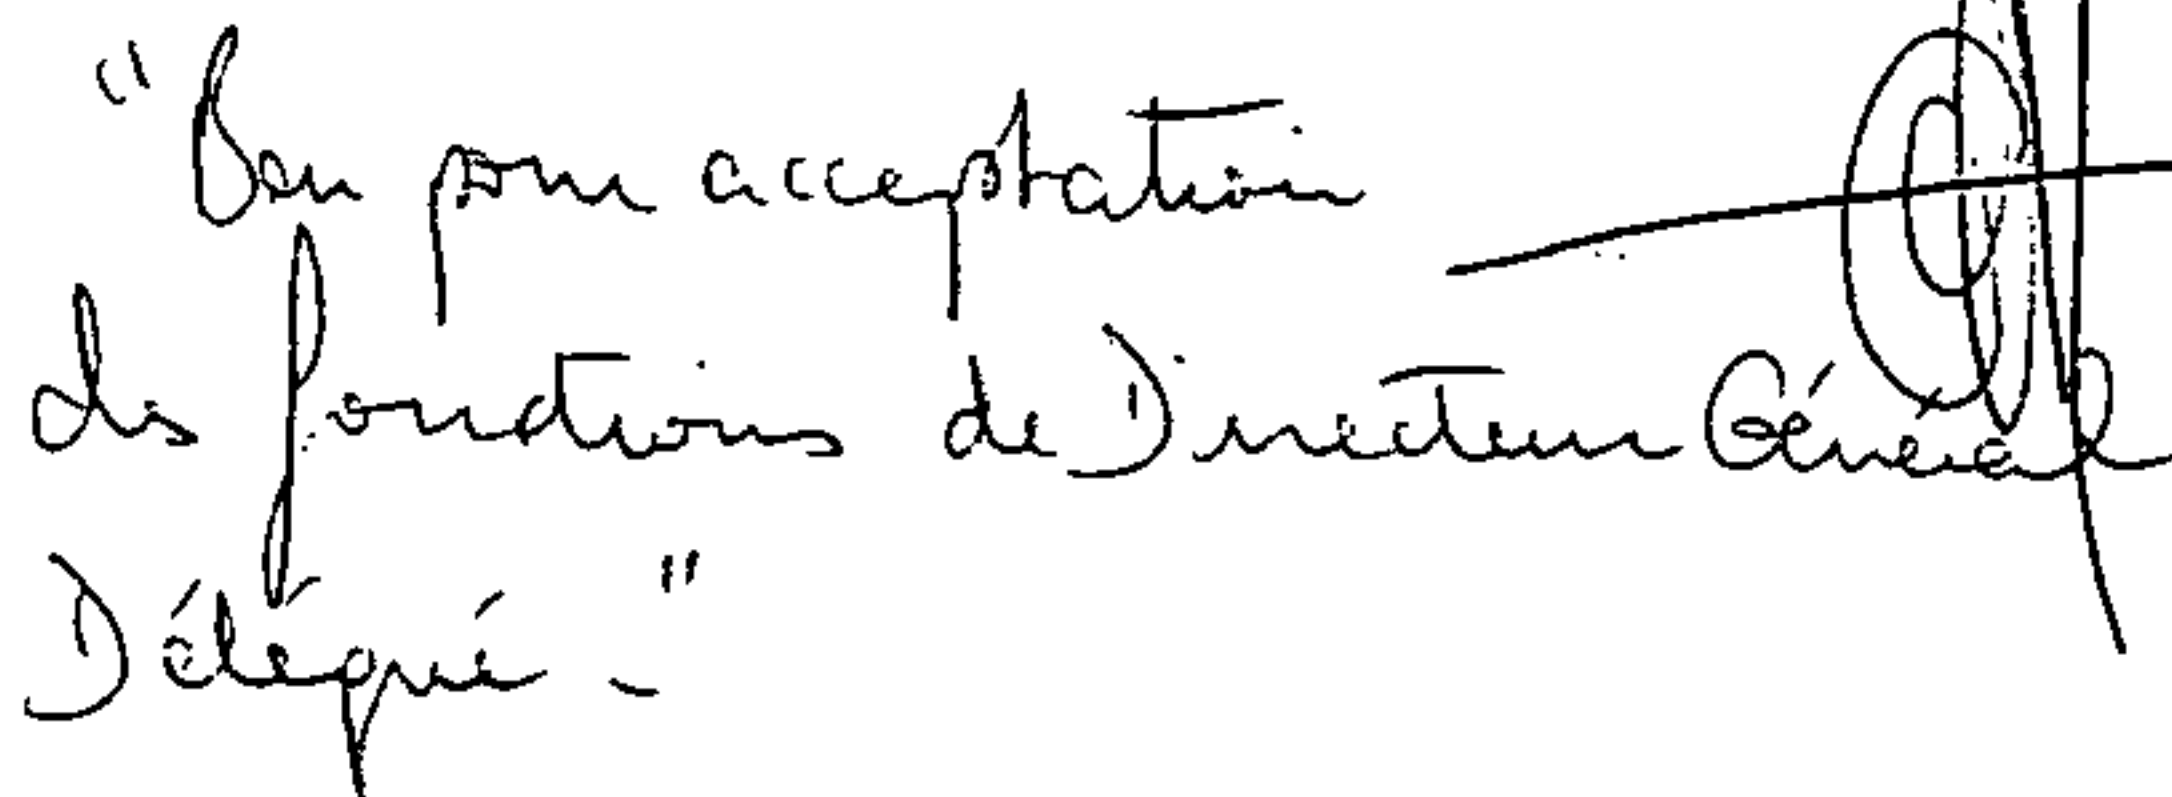 "Bon pour acceptation
des fonctions de Directeur Général
Délégué -"